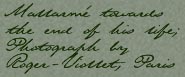 Mallarmé towards
the end of his life;
Photograph by
Roger-Viollet, Paris